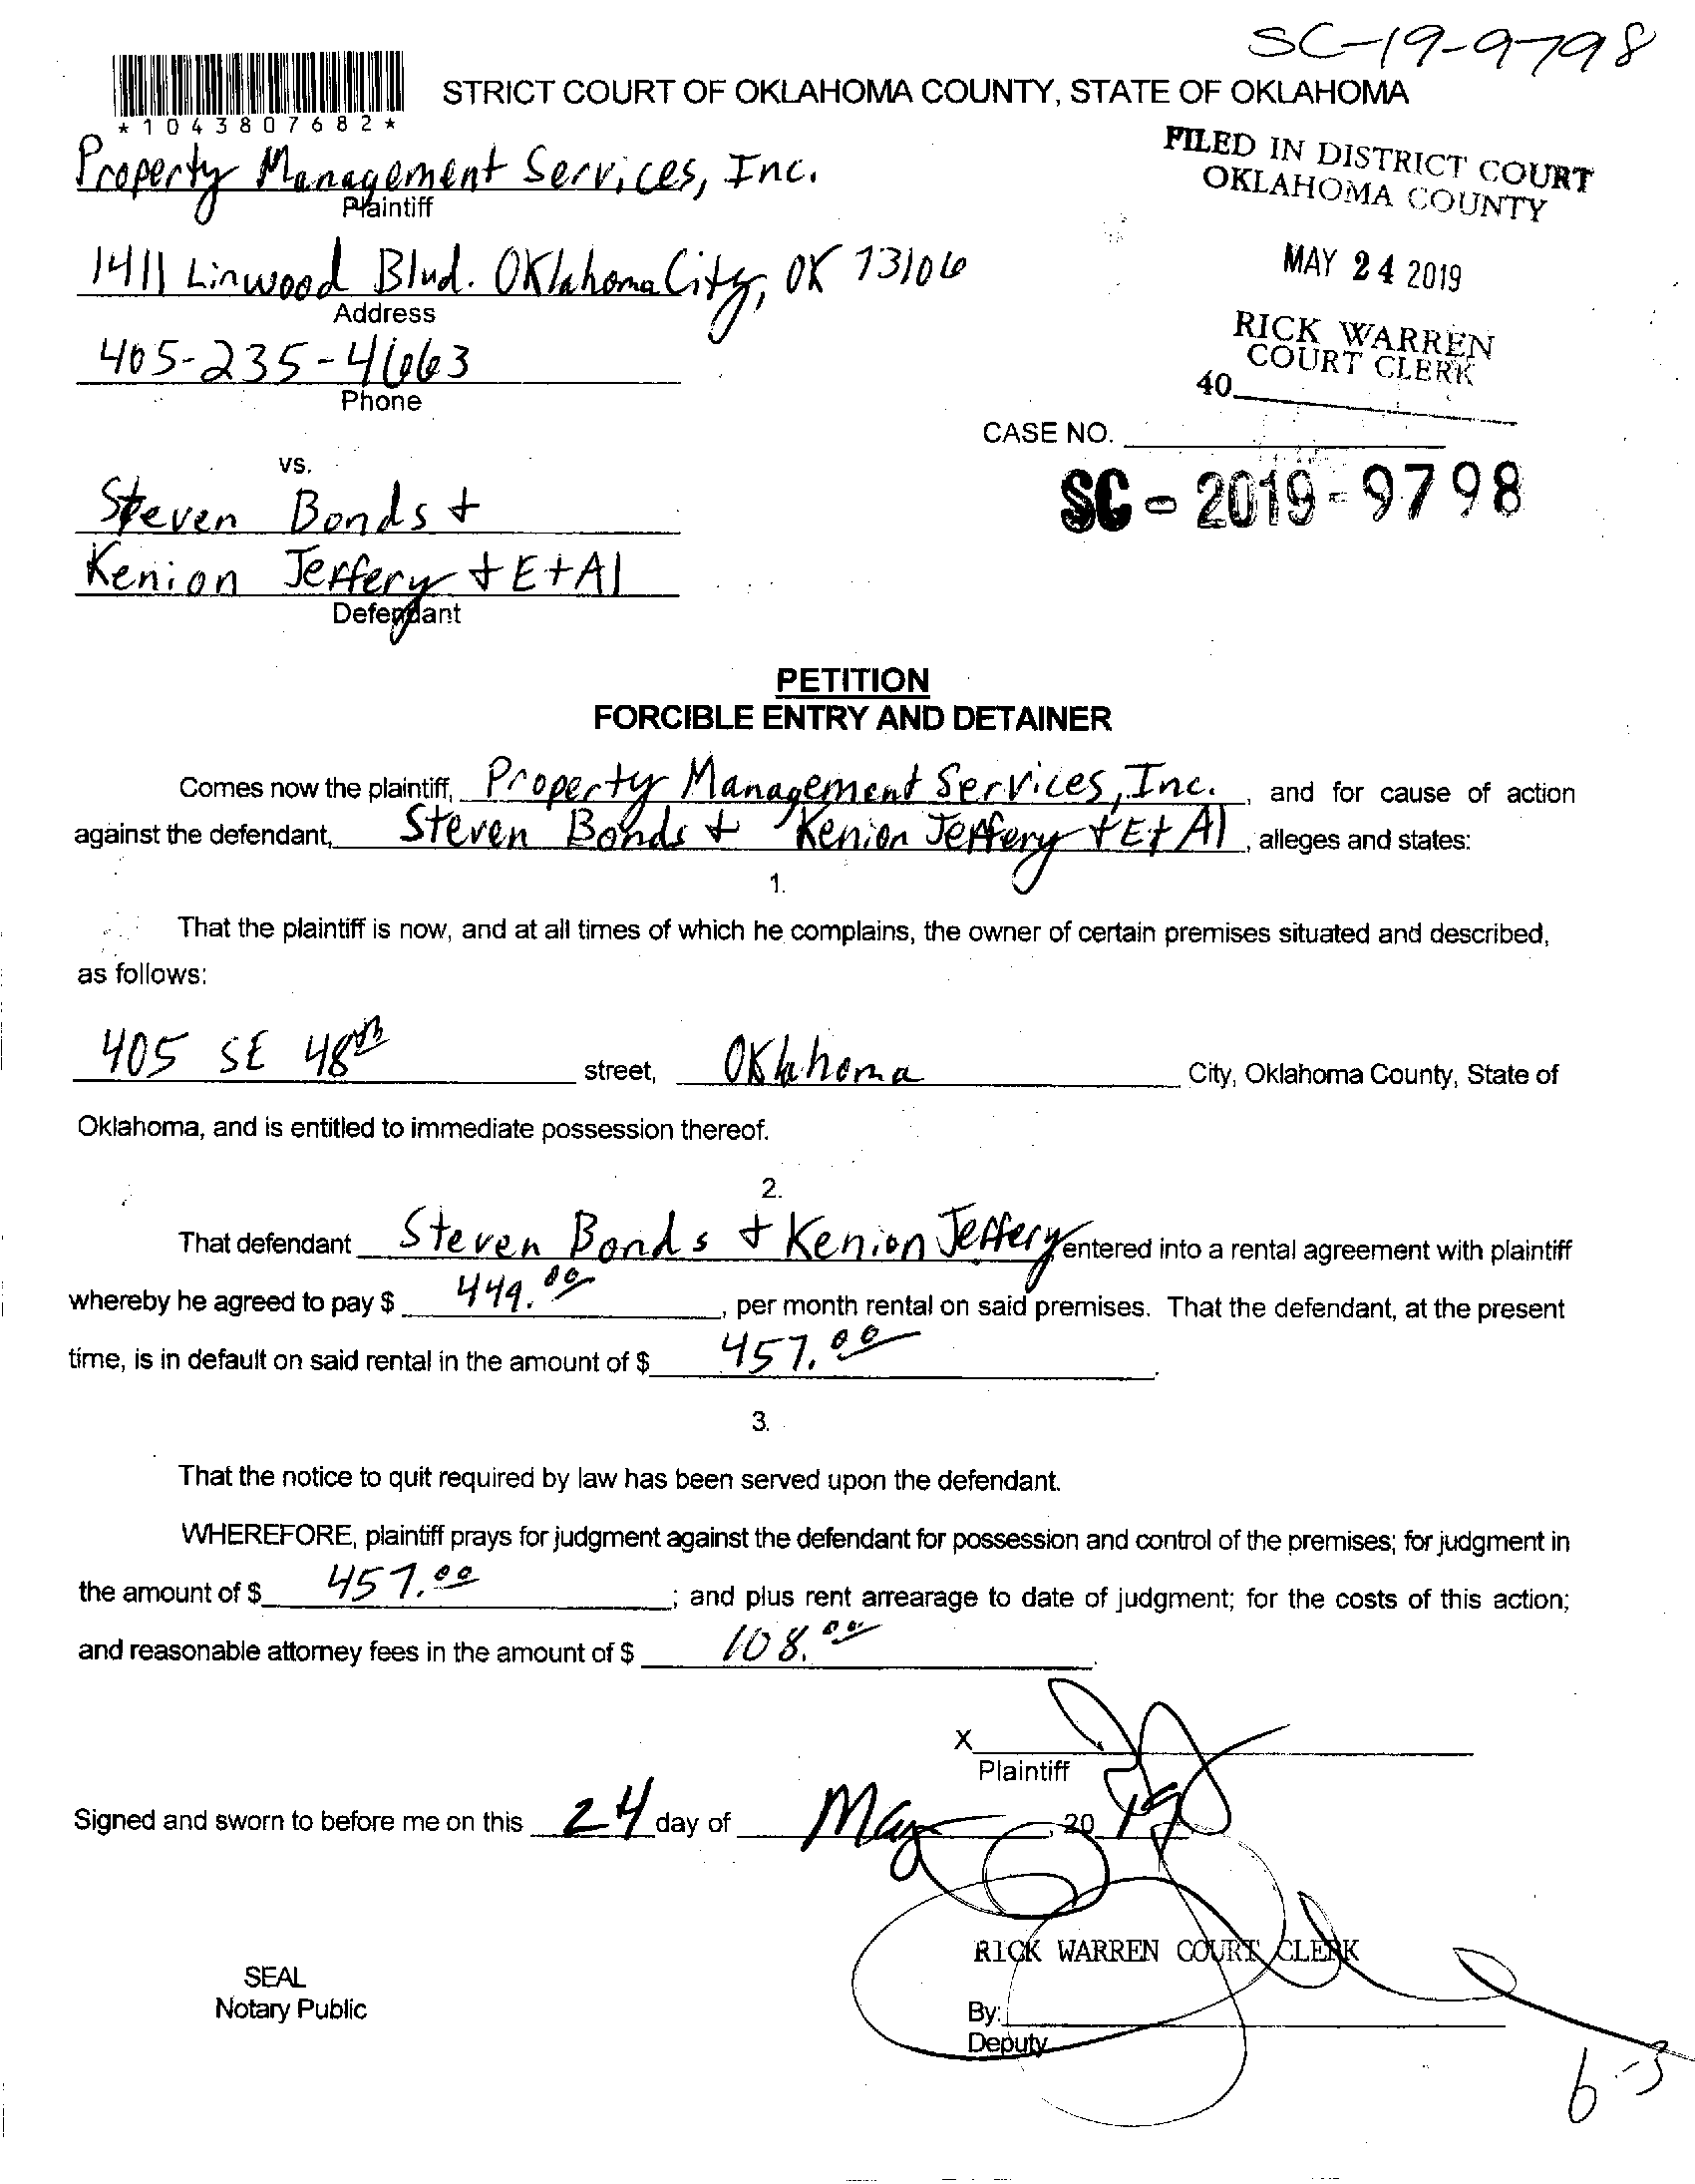 SC-19-9798
*1043807682*
STRICT COURT OF OKLAHOMA COUNTY, STATE OF OKLAHOMA
FILED IN DISTRICT COURT
OKLAHOMA COUNTY
MAY 24 2019
RICK WARREN
COURT CLERK
40
Property Management Services, Inc.
Plaintiff
1411 Linwood Blvd. Oklahoma City, OK 73106
Address
405-235-4663
Phone
CASE NO.
SC-2019-9798
vs.
Steven Bonds +
Kenion Jeffery + Et Al
Defendant
PETITION
FORCIBLE ENTRY AND DETAINER
Comes now the plaintiff, Property Management Services, Inc. , and for cause of action
against the defendant, Steven Bonds + Kenion Jeffery + Et Al , alleges and states:
1.
That the plaintiff is now, and at all times of which he complains, the owner of certain premises situated and described,
as follows:
405 SE 48th street, Oklahoma City, Oklahoma County, State of
Oklahoma, and is entitled to immediate possession thereof.
2.
That defendant Steven Bonds + Kenion Jeffery entered into a rental agreement with plaintiff
whereby he agreed to pay $ 449.00 , per month rental on said premises. That the defendant, at the present
time, is in default on said rental in the amount of $ 457.00 .
3.
That the notice to quit required by law has been served upon the defendant.
WHEREFORE, plaintiff prays for judgment against the defendant for possession and control of the premises; for judgment in
the amount of $ 457.00 ; and plus rent arrearage to date of judgment; for the costs of this action;
and reasonable attorney fees in the amount of $ 108.00 .
X
Plaintiff
Signed and sworn to before me on this 24 day of May , 20 19
RICK WARREN COURT CLERK
SEAL
Notary Public
By:
Deputy
6-3